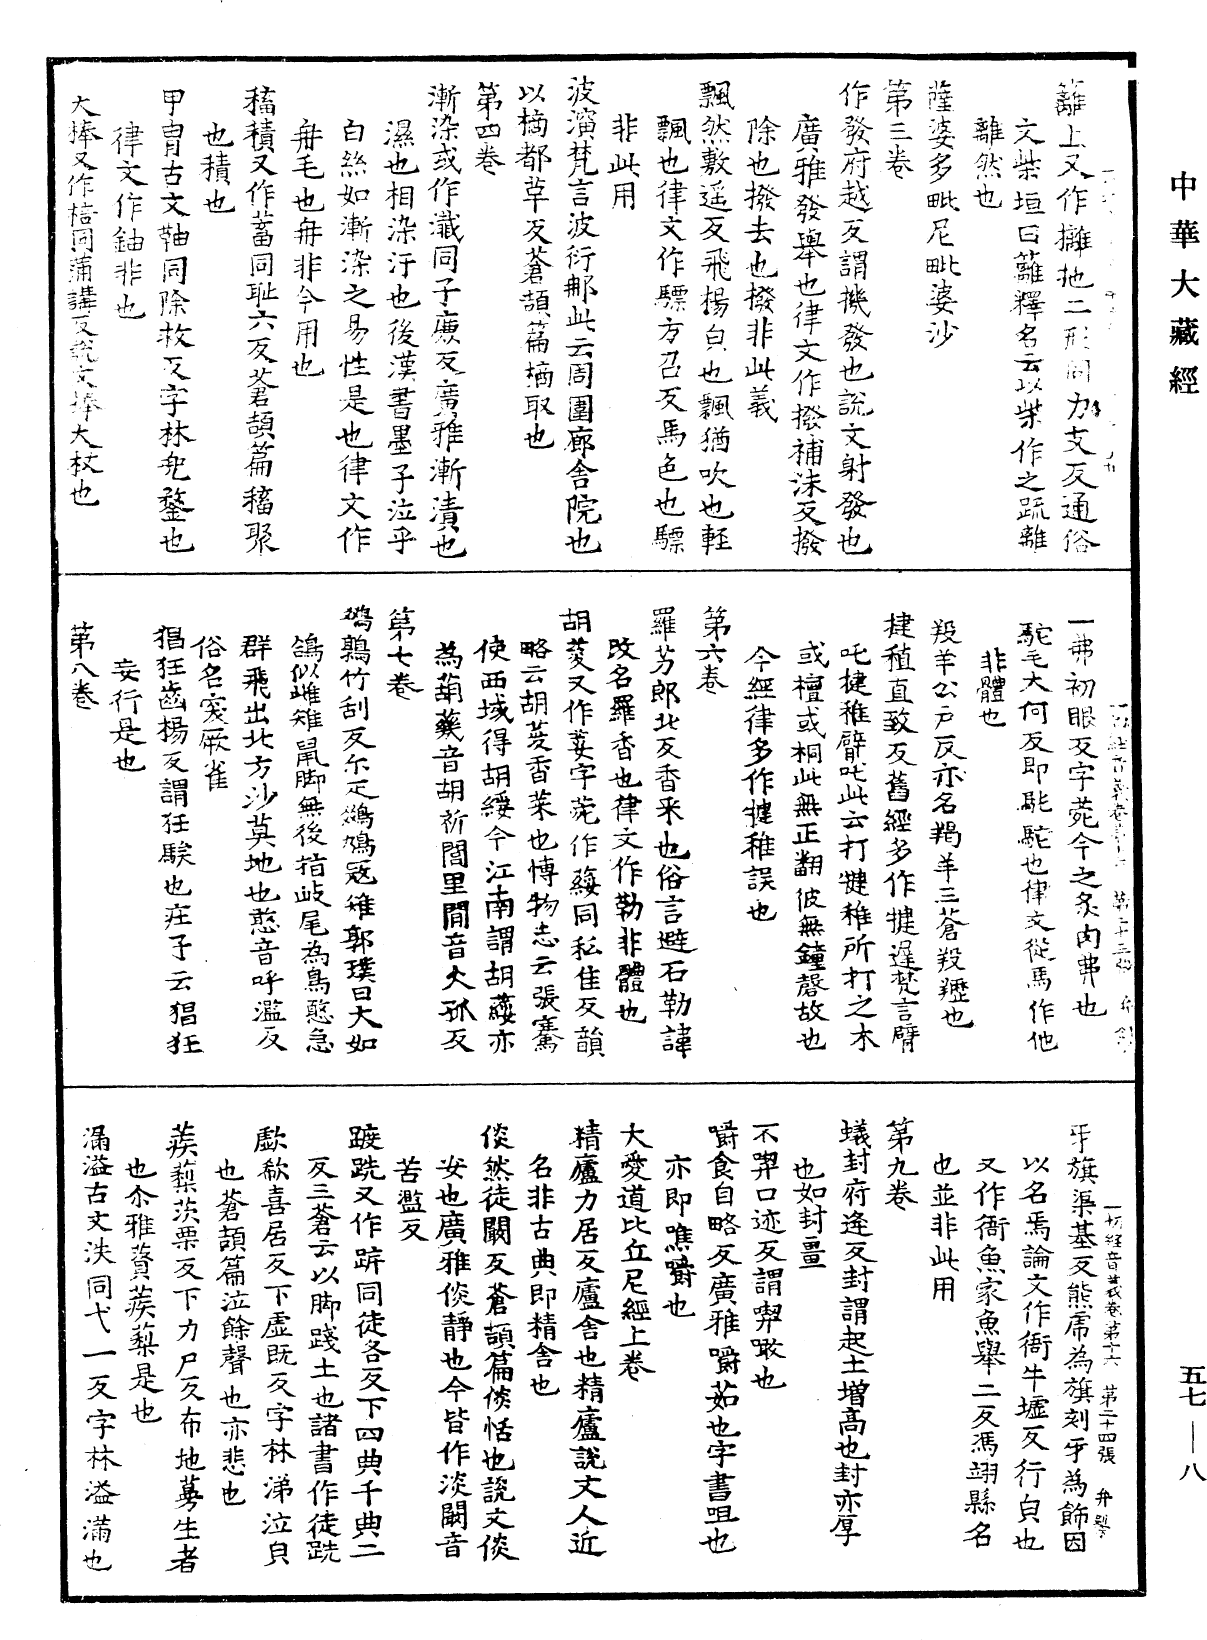 中華大藏經
籬上又作攡杝二形同力支反通俗
文柴垣曰籬釋名云以柴作之疏離
離然也
薩婆多毗尼毗婆沙
第三卷
作發府越反謂機發也說文射發也
廣雅發舉也律文作撥補沫反撥
除也撥去也撥非此義
飄然敷遥反飛揚皃也飄猶吹也輕
飄也律文作驃方召反馬色也驃
非此用
波演梵言波衍那此云周圍廊舍院也
以樀都革反蒼頡篇樀取也
第四卷
漸染或作瀸同子廉反廣雅漸漬也
濕也相染汙也後漢書墨子泣乎
白絲如漸染之易性是也律文作
冄毛也冄非今用也
稸積又作蓄同耻六反蒼頡篇稸聚
也積也
甲冑古文䩜同除救反字林兜鍪也
律文作鈾非也
大棒又作棓同蒲講反說文棒大杖也
一弗初眼反字苑今之炙肉弗也
駝毛大何反即駞駝也律文從馬作他
非體也
羖羊公戶反亦名羯羊三蒼羖䍽也
揵稙直致反舊經多作揵遲梵言臂
吒揵稚臂吒此云打揵稚所打之木
或檀或桐此無正翻彼無鐘磬故也
今經律多作揵稚誤也
第六卷
羅勒郎北反香菜也俗言避石勒諱
改名羅香也律文作勒非體也
胡荽又作葰字苑作䔑同私隹反韻
略云胡荽香菜也博物志云張騫
使西域得胡綏今江南謂胡䔑亦
為葫䕼音胡祈閭里間音火孤反
第七卷
鵽鶉竹刮反尒疋鵽鳩寇雉郭璞曰大如
鴿似雌雉鼠脚無後指歧尾為鳥憨急
群飛出北方沙莫地也憨音呼濫反
俗名突厥雀
猖狂齒楊反謂狂騃也庄子云猖狂
妄行是也
第八卷
一切經音義卷第十六　第二十四張　弁
牙旗渠基反熊虎為旗刻牙為飾因
以名焉論文作衙牛墟反行皃也
又作衙魚家魚舉二反馮翊縣名
也並非此用
第九卷
蟻封府逢反封謂起土增高也封亦厚
也如封畺
不㗁口迹反謂㗁噉也
嚼食自略反廣雅嚼茹也字書咀也
亦即噍嚼也
大愛道比丘尼經上卷
精廬力居反廬舍也精廬說文人近
名非古典即精舍也
倓然徒闞反蒼頡篇倓恬也說文倓
安也廣雅倓静也今皆作淡闞音
苦濫反
踱跣又作跅同徒各反下四典千典二
反三蒼云以脚踐土也諸書作徒跣
歔欷喜居反下虚既反字林涕泣皃
也蒼頡篇泣餘聲也亦悲也
蒺䔧茨栗反下力尸反布地蔓生者
也尒雅薋蒺䔧是也
滿溢古文泆同弋一反字林溢滿也
五七—八